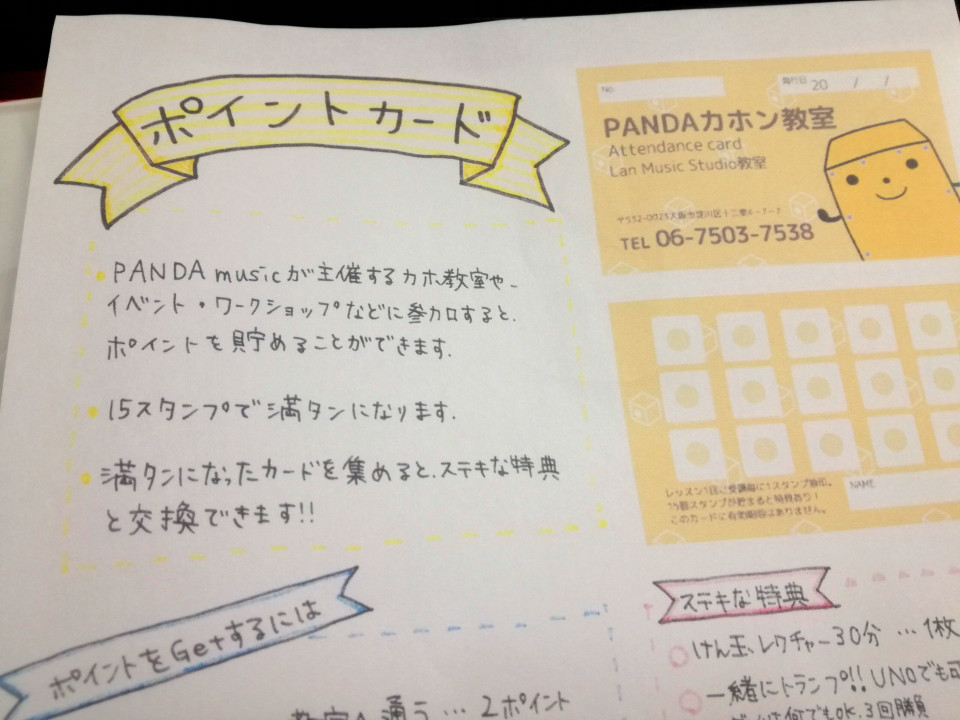 ポイントカード
PANDA musicが主催するカホン教室や、
イベント・ワークショップなどに参加すると、
ポイントを貯めることができます。
15スタンプで満タンになります.
満タンになったカードを集めると、ステキな特典
と交換できます!!
No.
発行日 20 / /
PANDAカホン教室
Attendance card
Lan Music Studio教室
〒532-0023大阪市淀川区十三東
TEL 06-7503-7538
レッスン1回ご受講毎に1スタンプ捺印。
15個スタンプが貯まると特典あり!
このカードに有効期限はありません。
NAME
ポイントをGetするには
通う… 2ポイント
ステキな特典
けん玉レクチャー30分 … 1枚
一緒にトランプ!! UNOでも可
何でもOK. 3回勝負